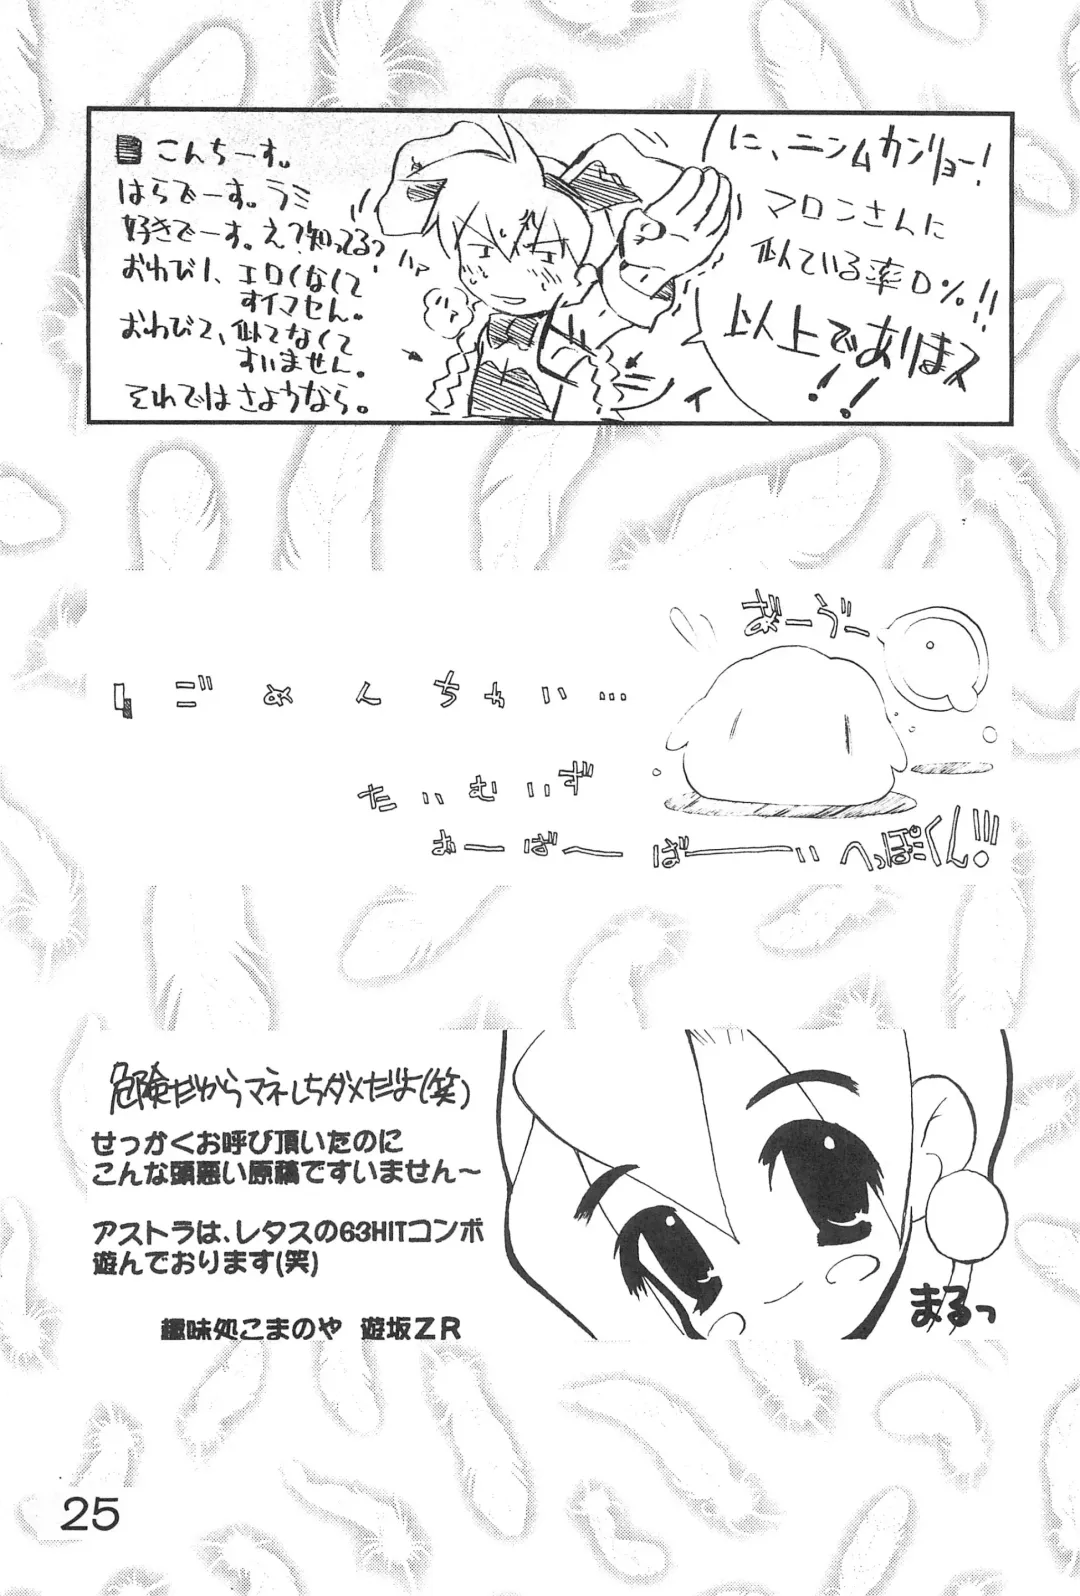 こんちーす。
はらでーす。ラミ
好きでーす。え?知ってる?
おわび1、エロくなくて
すイマセん。
おわび2、似てなくて
すいません。
それではさようなら。
ハァ
に、ニンムカンリョー!
マロンさんに
似ている率0%!!
以上でありまス
!!
ごめんちゃい…
たいむいず
おーばーばーい へっぽこくん!!!
危険だからマネしちダメだよ(笑)
せっかくお呼び頂いたのに
こんな頭悪い原稿ですいません~
アストラは、レタスの63HITコンボ
遊んでおります(笑)
趣味処こまのや 遊坂ZR
まるっ
25